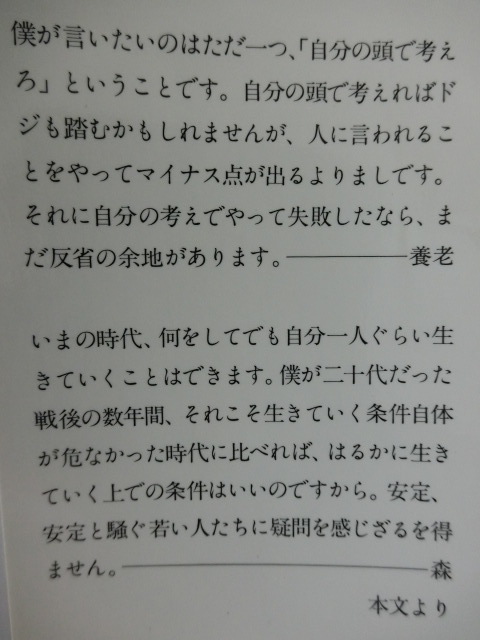 僕が言いたいのはただ一つ、「自分の頭で考え
ろ」ということです。自分の頭で考えればド
ジも踏むかもしれませんが、人に言われるこ
とをやってマイナス点が出るよりましです。
それに自分の考えでやって失敗したなら、ま
だ反省の余地があります。――――養老
いまの時代、何をしてでも自分一人ぐらい生
きていくことはできます。僕が二十代だった
戦後の数年間、それこそ生きていく条件自体
が危なかった時代に比べれば、はるかに生き
ていく上での条件はいいのですから。安定、
安定と騒ぐ若い人たちに疑問を感じざるを得
ません。――――――――――――森
本文より